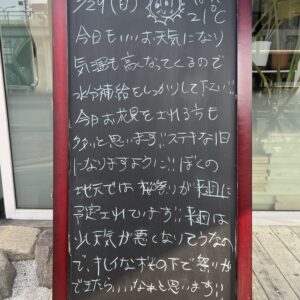 3/29(日) 21℃
今日もいいお天気になり
気温も高くなってくるので
水分補給をしっかりして下さい!!
今日お花見をされる方も
多いと思います!!ステキな1日
になりますように!!ぼくの
地元では桜祭りが来週に
予定されています!!来週は
少し天気が悪くなりそうなの
で、キレイな桜の下で祭りが
できたら、、、なぁと思います!!